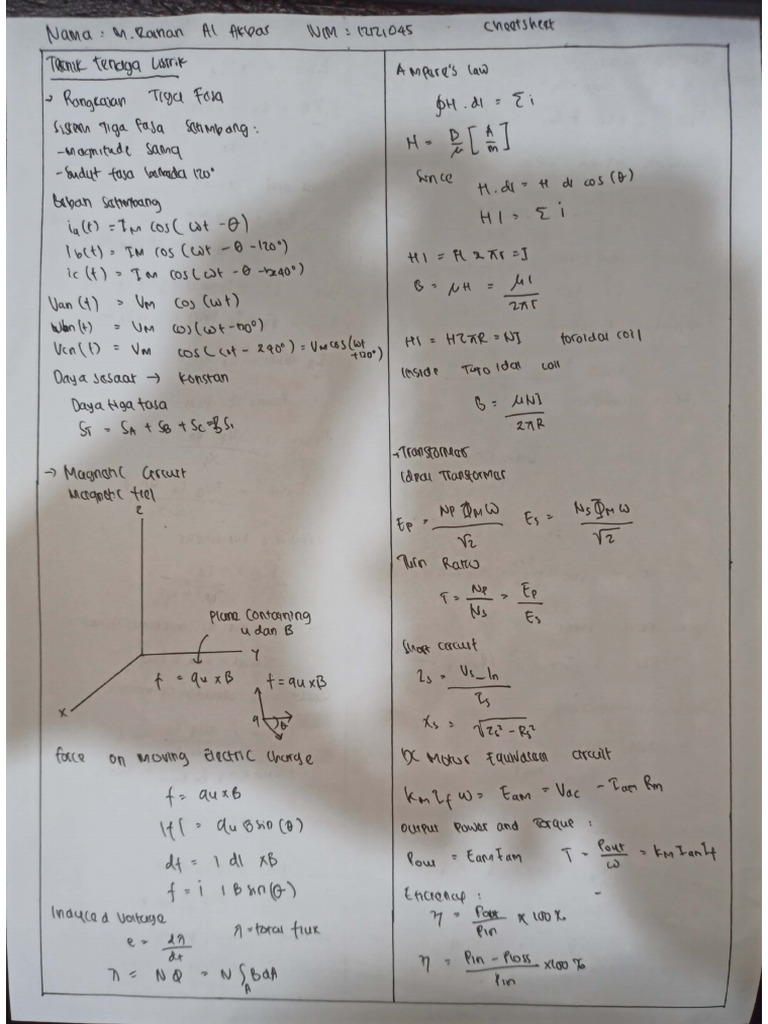 Nama : M. Raihan Al Akbar NIM : 12221045 Cheatsheet
Teknik Tenaga Listrik
→ Rangkaian Tiga Fasa
Sistem Tiga Fasa Seimbang :
- Magnitude Sama
- Sudut fasa berbeda 120°
Beban Seimbang
ia(t) = IM cos(ωt - θ)
ib(t) = IM cos(ωt - θ - 120°)
ic(t) = IM cos(ωt - θ - 240°)
Van(t) = VM cos(ωt)
Vbn(t) = VM cos(ωt - 120°)
Vcn(t) = VM cos(ωt - 240°) = VM cos(ωt + 120°)
Daya sesaat → Konstan
Daya tiga fasa
ST = SA + SB + SC = 3S1
→ Magnetic Circuit
Magnetic fiel
z
Plane Containing
u dan B
y
f = qu x B
f = qu x B
q
θ
x
Force on moving Electric Charge
f = qu x B
|f| = qu B sin(θ)
df = i dl x B
f = i l B sin(θ)
Induced Voltage
e = dλ/dt
λ = total flux
λ = NΦ = N∫A B dA
Ampere's Law
∮H . dl = Σ i
H = B/μ [A/m]
Since H . dl = H dl cos(θ)
Hl = Σ i
Hl = H 2πr = I
B = μH = μI/2πr
Hl = H2πR = NI toroidal coil
Inside Toroidal coil
B = μNI/2πR
→ Transformer
Ideal Transformer
Ep = NP ΦM ω/√2 Es = NS ΦM ω/√2
Turn Ratio
T = NP/NS = EP/ES
Short circuit
Zs = Vs_ln/Is
Xs = √Zs² - Rs²
DC Motor Equivalent circuit
km If ω = Eam = Vdc - Iam Rm
Output Power and Torque :
Pout = Eam Iam T = Pout/ω = kM Iam If
Efficiency :
η = Pout/Pin x 100%
η = Pin - Ploss/Pin x 100%